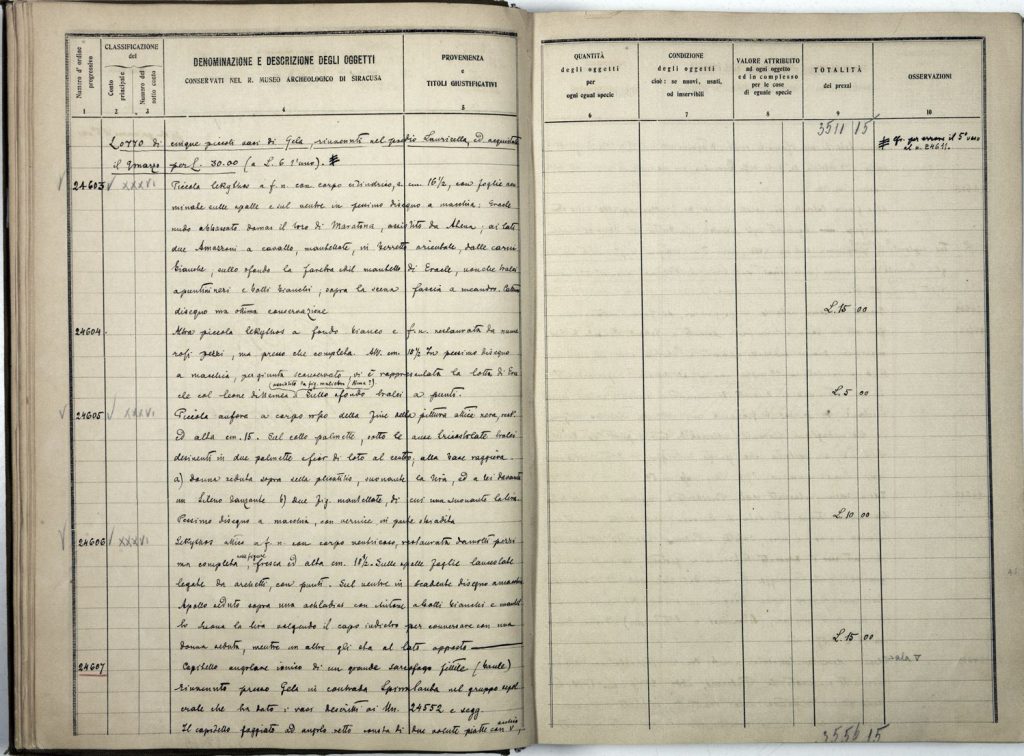 Numero d'ordine progressivo
CLASSIFICAZIONE del
Conto principale
Numero del sotto conto
DENOMINAZIONE E DESCRIZIONE DEGLI OGGETTI
CONSERVATI NEL R. MUSEO ARCHEOLOGICO DI SIRACUSA
PROVENIENZA
e
TITOLI GIUSTIFICATIVI
1 2 3 4 5
Lotto di cinque piccoli vasi di Gela, rinvenuti nel predio Lauricella, ed acquistati
il marzo per L. 30.00 (a L. 6 l'uno). #
24603 V XXXVI Piccola lekythos a f. n. con corpo cilindrico, a. cm. 16 1/2, con foglie
sulle spalle e sul ventre in pessimo disegno a macchia: Eracle
nudo abbassato doma il toro di Maratona, assistito da Athena; ai lati
due Amazzoni a cavallo, mantellate, in berretto orientale, dalle carni
bianche; sullo sfondo la faretra ed il mantello di Eracle, nonché tralci
a puntini neri e botti bianchi; sopra la scena fascia a meandro.
disegno ma ottima conservazione
24604 Altra piccola lekythos a fondo bianco e f. n. restaurata da nume
rosi pezzi, ma presso che completa. Alt. cm. 18 1/2 In pessimo disegno
a macchia, per giunta sconservato, vi è rappresentata la lotta di Era
cle col leone di Nemea. Sullo sfondo tralci a punti.
24605 V XXXVI Piccola anfora a corpo della fine della pittura attica nera, rest.
ed alta cm. 15. Sul collo palmette, sotto le anse tricostolate tralci
desinenti in due palmette e fior di loto al centro; alla base raggiera.
a) donna seduta sopra sella plicatilis, suonante la lira, ed a lei davanti
un Sileno danzante b) due fig. mantellate, di cui una suonante la lira.
Pessimo disegno a macchia, con vernice in parte sbiadita
24606 V XXXVI Lekythos attica a f. n. con corpo ventricoso, restaurata da molti pezzi
ma completa, fresca ed alta cm. 18 1/2. Sulle spalle foglie lanceolate
legate da archetti, con punti. Sul ventre in scadente disegno a macchia
Apollo seduto sopra una okladias con chitone a botti bianchi e mantel
lo suona la lira volgendo il capo indietro per conversare con una
donna seduta, mentre un altro gli sta al lato opposto
24607 Capitello angolare ionico di un grande sarcofago fittile (baule)
rinvenuto presso Gela in contrada Spina Santa nel gruppo sepol
crale che ha dato i vasi descritti ai Nn. 24552 e segg.
Il capitello foggiato ad angolo retto consta di due volute piatte con
QUANTITÀ
degli oggetti
per
ogni egual specie
CONDIZIONE
degli oggetti
cioè: se nuovi, usati,
od inservibili
VALORE ATTRIBUITO
ad ogni oggetto
ed in complesso
per le cose
di eguale specie
TOTALITÀ
dei prezzi
OSSERVAZIONI
6 7 8 9 10
3511 15
# per errore il 5° vaso
al n. 24611.
L. 15 00
L. 5 00
L. 10 00
L. 15 00
3556 15